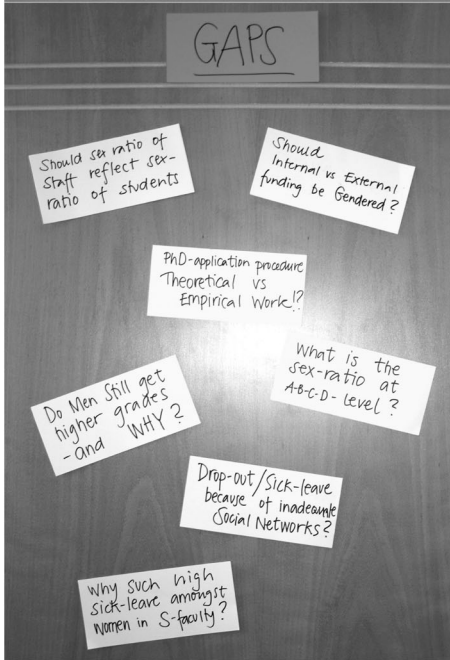 GAPS
Should sex ratio of
Staff reflect sex-
ratio of students
Should
Internal vs External
funding be Gendered?
PhD-application procedure
Theoretical vs
Empirical Work!?
What is the
sex-ratio at
A-B-C-D-level?
Do Men Still get
higher grades
-and WHY?
Drop-out/Sick-leave
because of inadequate
Social Networks?
Why such high
sick-leave amongst
women in S-faculty?